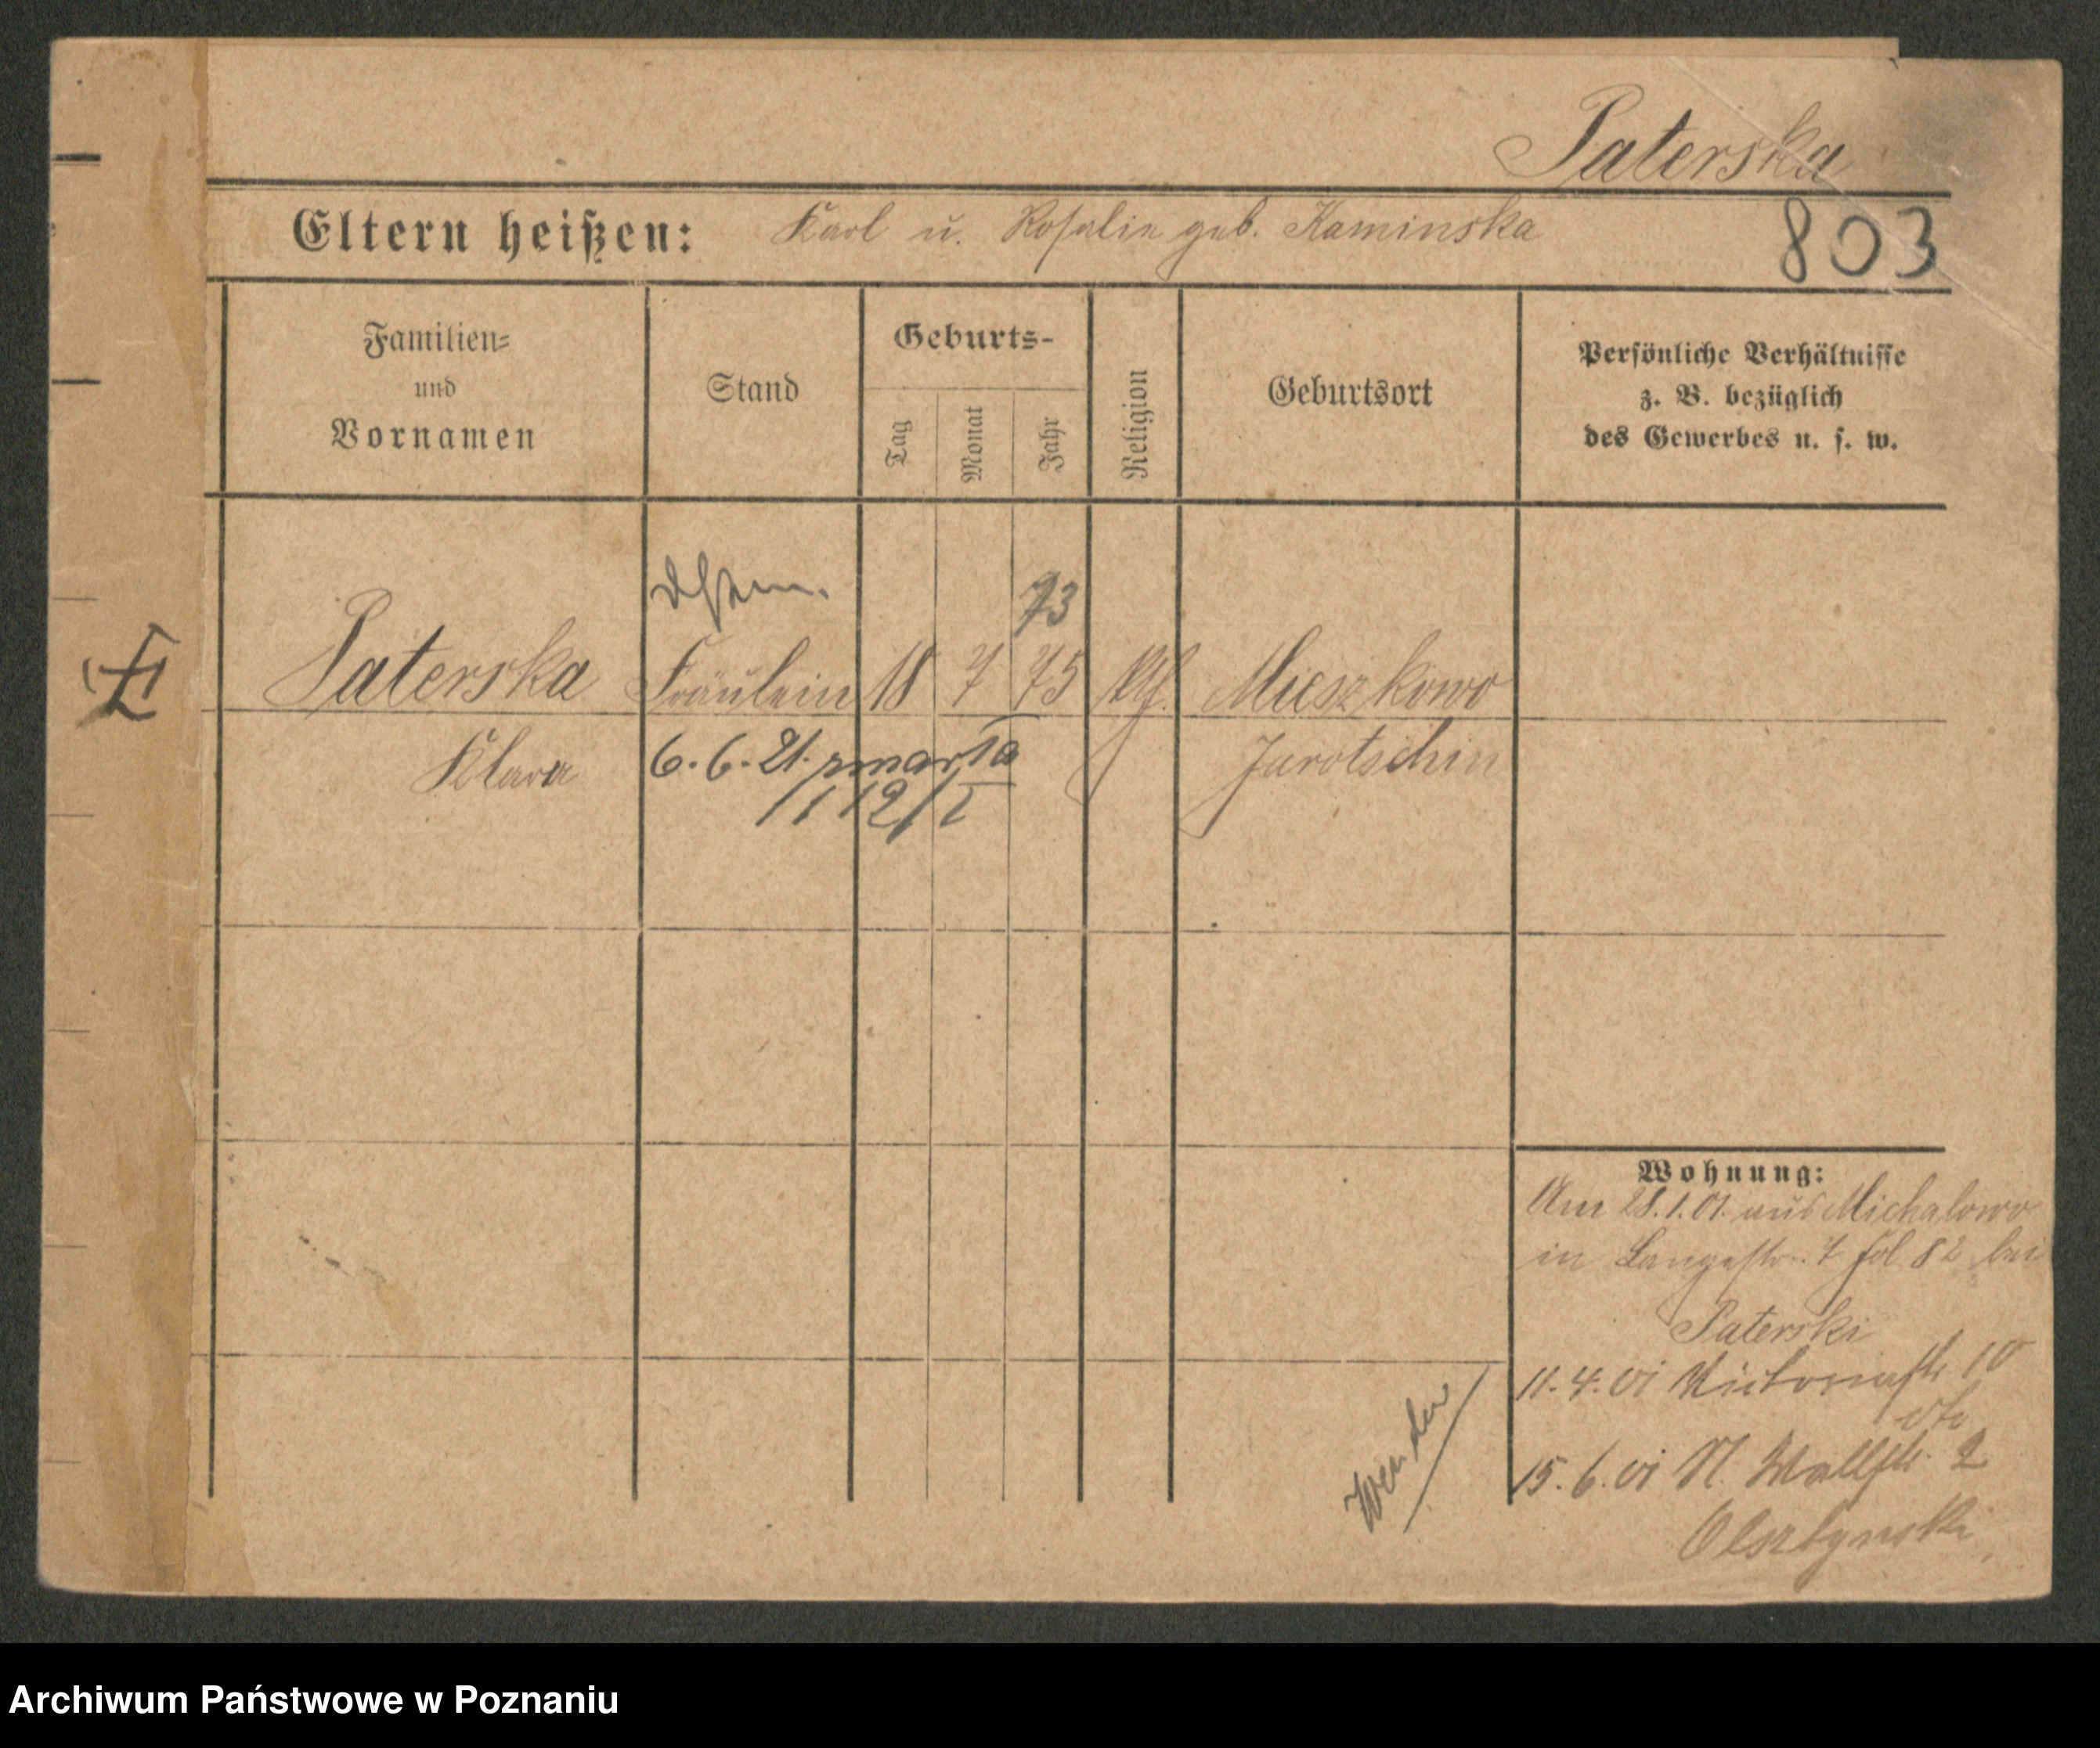 Paterska
Eltern heißen: Karl u. Rosalie geb. Kaminska
803
Familien=
und
Vornamen
Stand
Geburts-
Tag
Monat
Jahr
Religion
Geburtsort
Persönliche Verhältnisse
z. B. bezüglich
des Gewerbes u. s. w.
73
Paterska Fräulein 18 7 75 kth. Mieszkowo
Klara 6. 6. 21. zmarła Jarotschin
/1112/I
Wohnung:
Am 28.1.01. aus Michalowo
in Langestr. 7 fol 82 bei
Paterski
11. 4. 01 Victoriastr 10
15. 6. 01 N. Wallstr. 2
Olsztynski
Wenden
Archiwum Państwowe w Poznaniu